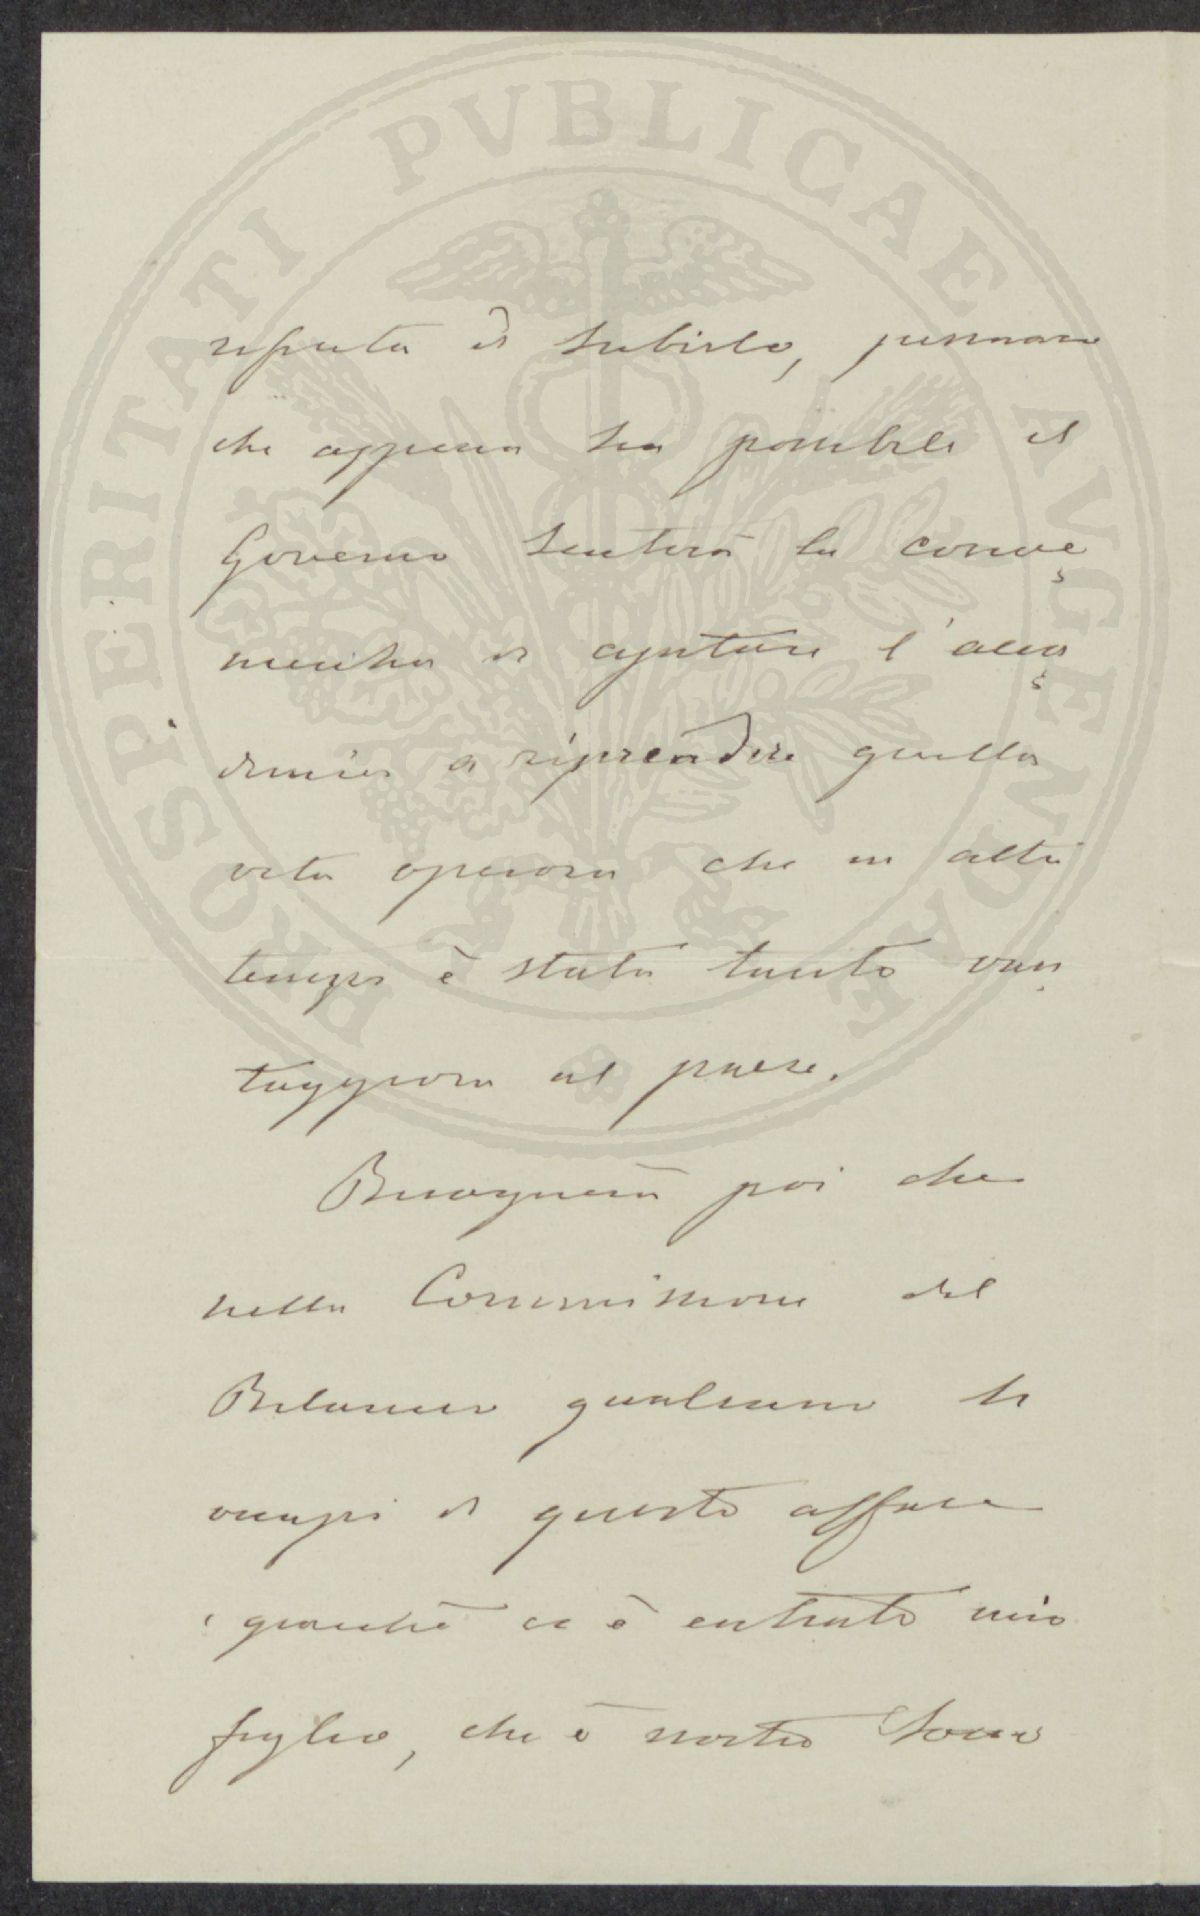 PROSPERITATI PVBLICAE AVGENDAE
di subirlo,
che appena sia possibile il
Governo sentirà la conve
nienza di ajutare l'acca
demia a riprendere quella
vita operosa che in altri
tempi è stata tanto van
taggiosa al paese.
Bisognerà poi che
nella Commissione del
Bilancio qualcuno si
occupi di questo affare
giacchè ci è entrato mio
figlio, che è nostro Socio